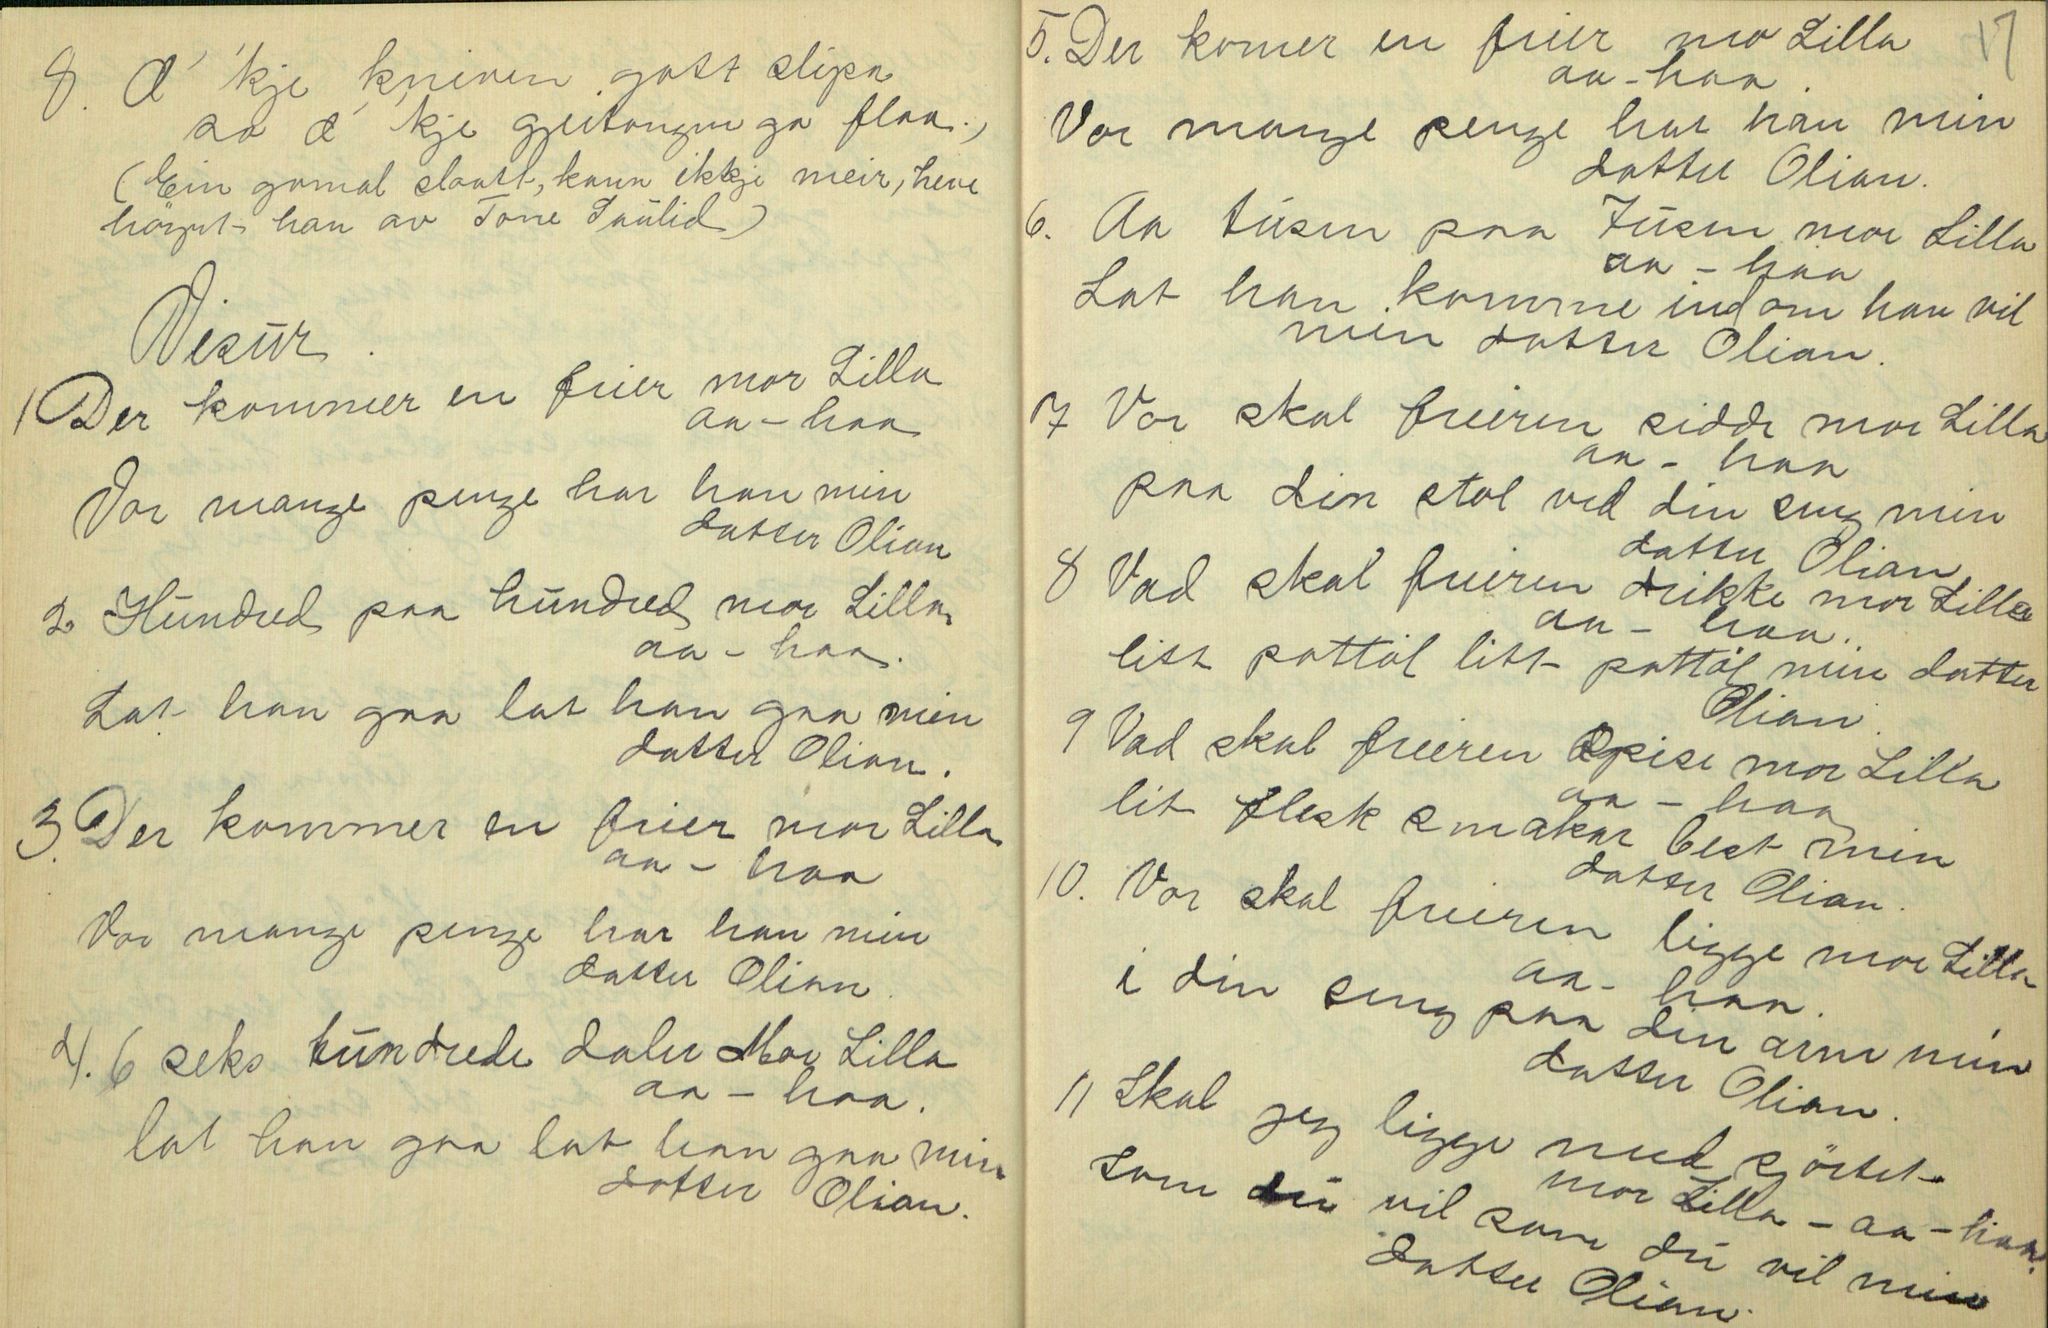 8. d' 'kje kniven gott slipa
so d' 'kje gjeitongen go flaa.,
(Ein gomal slaatt, kann ikkje meir, heve
höyrt han av Tone Saulid)
Visur.
1 Der kommer en frier mor Lilla
aa - haa
Vor mange penge har han min
datter Olian
2 Hundred paa hundred mor Lilla
aa - haa.
Lat han gaa lat han gaa min
datter Olian.
3. Der kommer en frier mor Lilla
aa - haa
Vor mange penge har han min
datter Olian.
4. 6 seks hundrede daler Mor Lilla
aa - haa.
lat han gaa lat han gaa min
datter Olian.
17
5. Der komer en frier mor Lilla
aa - haa.
Vor mange penge har han min
datter Olian.
6. Aa tusen paa Tusen mor Lilla
aa - haa
Lat han komme ind om han vil
min datter Olian.
7 Vor skal frieren sidde mor Lilla
aa - haa
paa din stol ved din seng min
datter Olian
8 Vad skal frieren drikke mor Lilla
aa - haa.
litt pottöl litt pottöl min datter
Olian.
9 Vad skal frieren spise mor Lilla
aa - haa
lit flesk smakar best min
datter Olian.
10. Vor skal frieren ligge mor Lilla
aa - haa.
i din seng paa din arm min
datter Olian.
11 Skal jeg ligge med sjörtet
mor Lilla - aa - haa.
som du vil som du vil min
datter Olian.